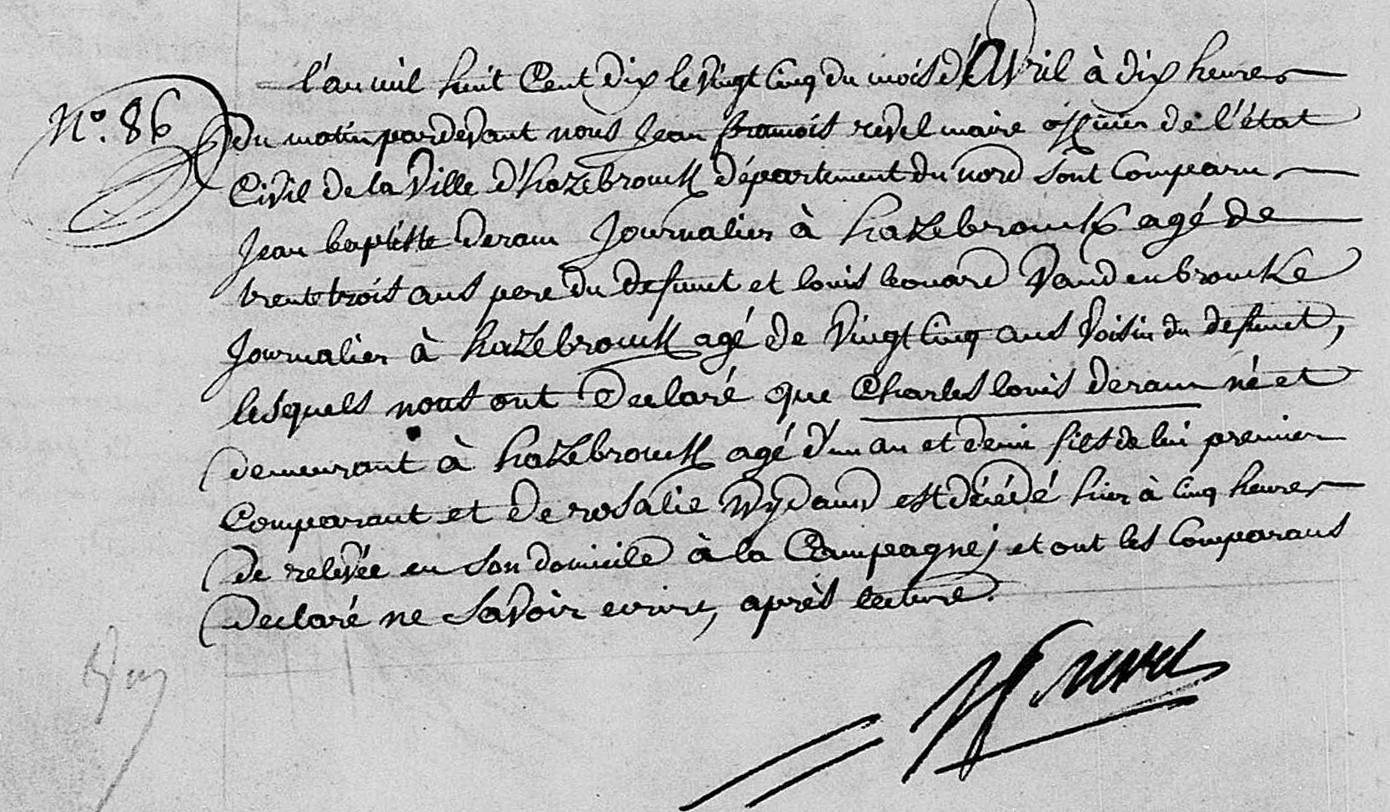 N.º 86
l'an mil huit Cent dix le vingt Cinq du mois d'Avril à dix heures
du matin pardevant nous Jean françois revel maire officier de l'état
Civil de la Ville d'hazebrouck département du nord sont Comparu
Jean baptiste deram Journalier à hazebrouck agé de
trente trois ans pere du defunct et louis leonard Vandenbroucke
Journalier à hazebrouck agé de Vingt Cinq ans Voisin du defunct,
lesquels nous ont Declaré que Charles louis deram né et
demeurant à hazebrouck agé d'un an et demi fils de lui premier
Comparant et de rosalie Wydauw est décédé hier à Cinq heures
de relévée en son domicile à la Campagne; et ont les Comparans
Declaré ne Savoir ecrire, après lecture.
Jf revel